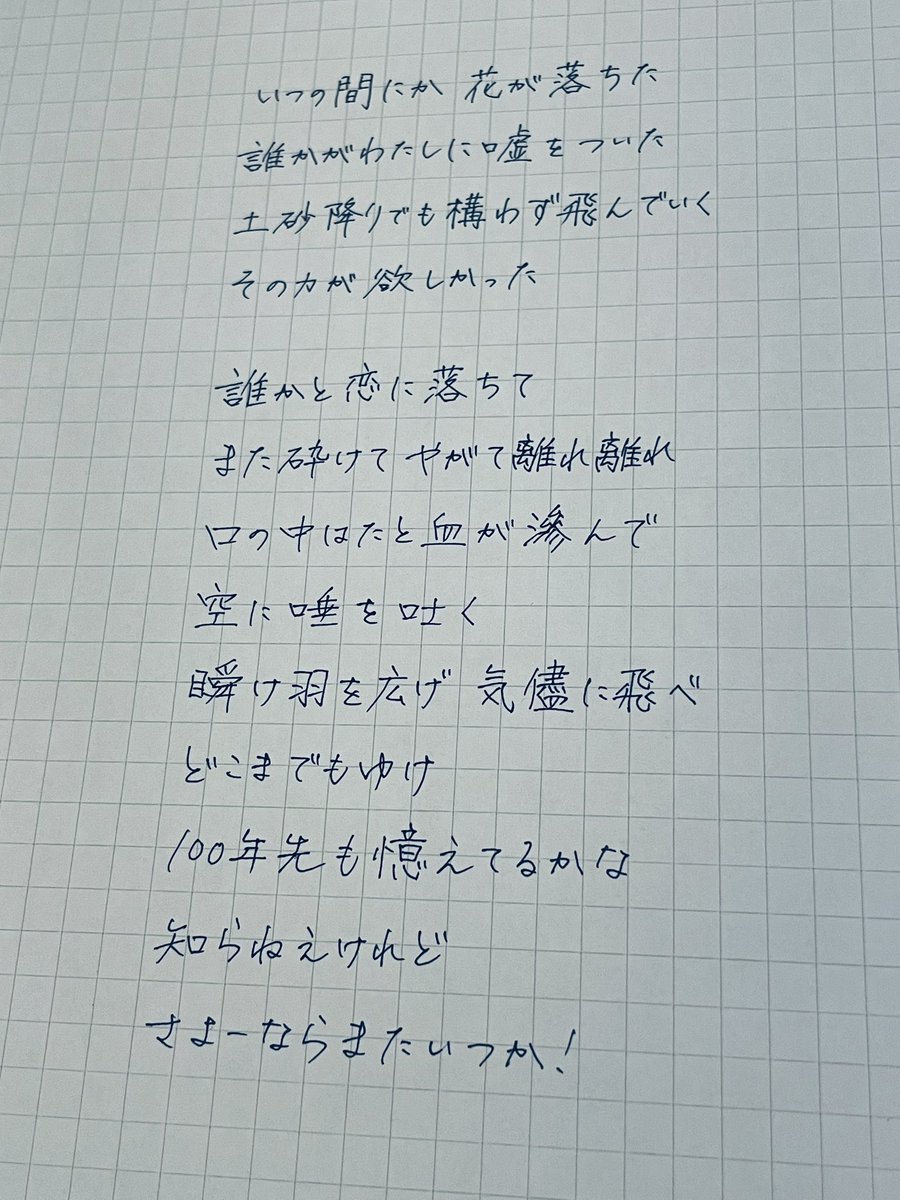 いつの間にか 花が落ちた
誰かがわたしに嘘をついた
土砂降りでも構わず飛んでいく
その力が欲しかった
誰かと恋に落ちて
また砕けて やがて離れ離れ
口の中はたと血が滲んで
空に唾を吐く
瞬け羽を広げ 気儘に飛べ
どこまでもゆけ
100年先も憶えてるかな
知らねえけれど
さよーならまたいつか!